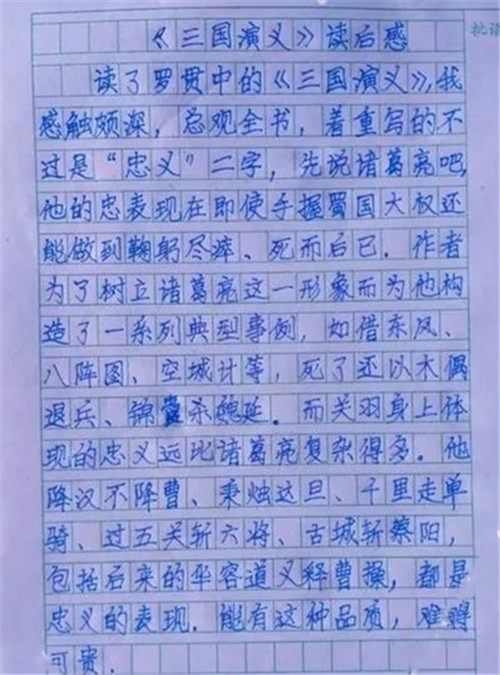 批语
《三国演义》读后感
读了罗贯中的《三国演义》,我
感触颇深，总观全书，着重写的不
过是“忠义”二字，先说诸葛亮吧,
他的忠表现在即使手握蜀国大权还
能做到鞠躬尽瘁、死而后已．作者
为了树立诸葛亮这一形象而为他构
造了一系列典型事例，如借东风、
八阵图、空城计等，死了还以木偶
退兵、锦囊杀魏延．而关羽身上体
现的忠义远比诸葛亮复杂得多．他
降汉不降曹、秉烛达旦、千里走单
骑、过五关斩六将、古城斩蔡阳，
包括后来的华容道义释曹操，都是
忠义的表现．能有这种品质，难得
可贵．